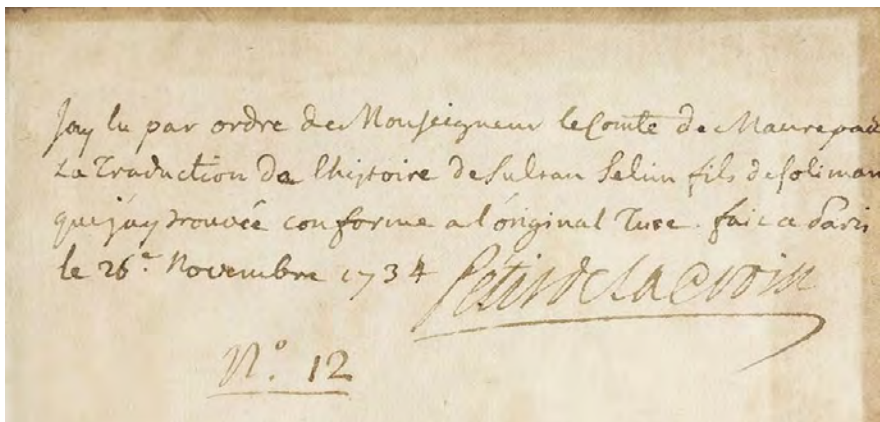 Jay lu par ordre de Monseigneur le Comte de Maurepas
La Traduction de lhistoire de Sultan Selim fils de soliman
que j'ay trouvée conforme a l'original Turc. faic a Paris
le 26.e Novembre 1734 Pétis de la Croix
N.o 12